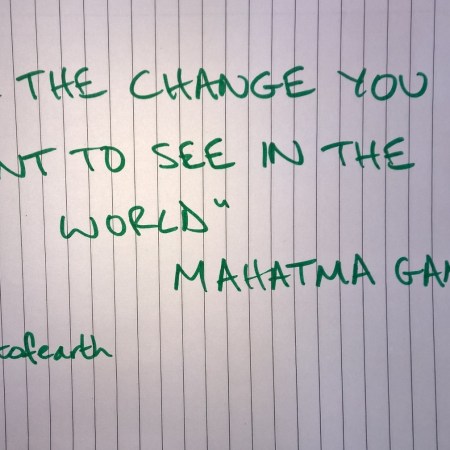 THE CHANGE YOU
NT TO SEE IN THE
WORLD"
MAHATMA GAN
cofearth